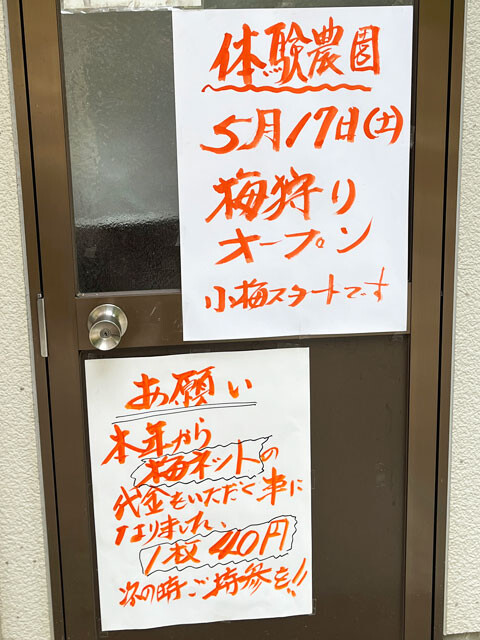 体験農園
5月17日(土)
梅狩り
オープン
小梅スタートです
お願い
本年から
梅ネットの
代金もいただく事に
なりました、
1枚40円
次の時ご持参を!!